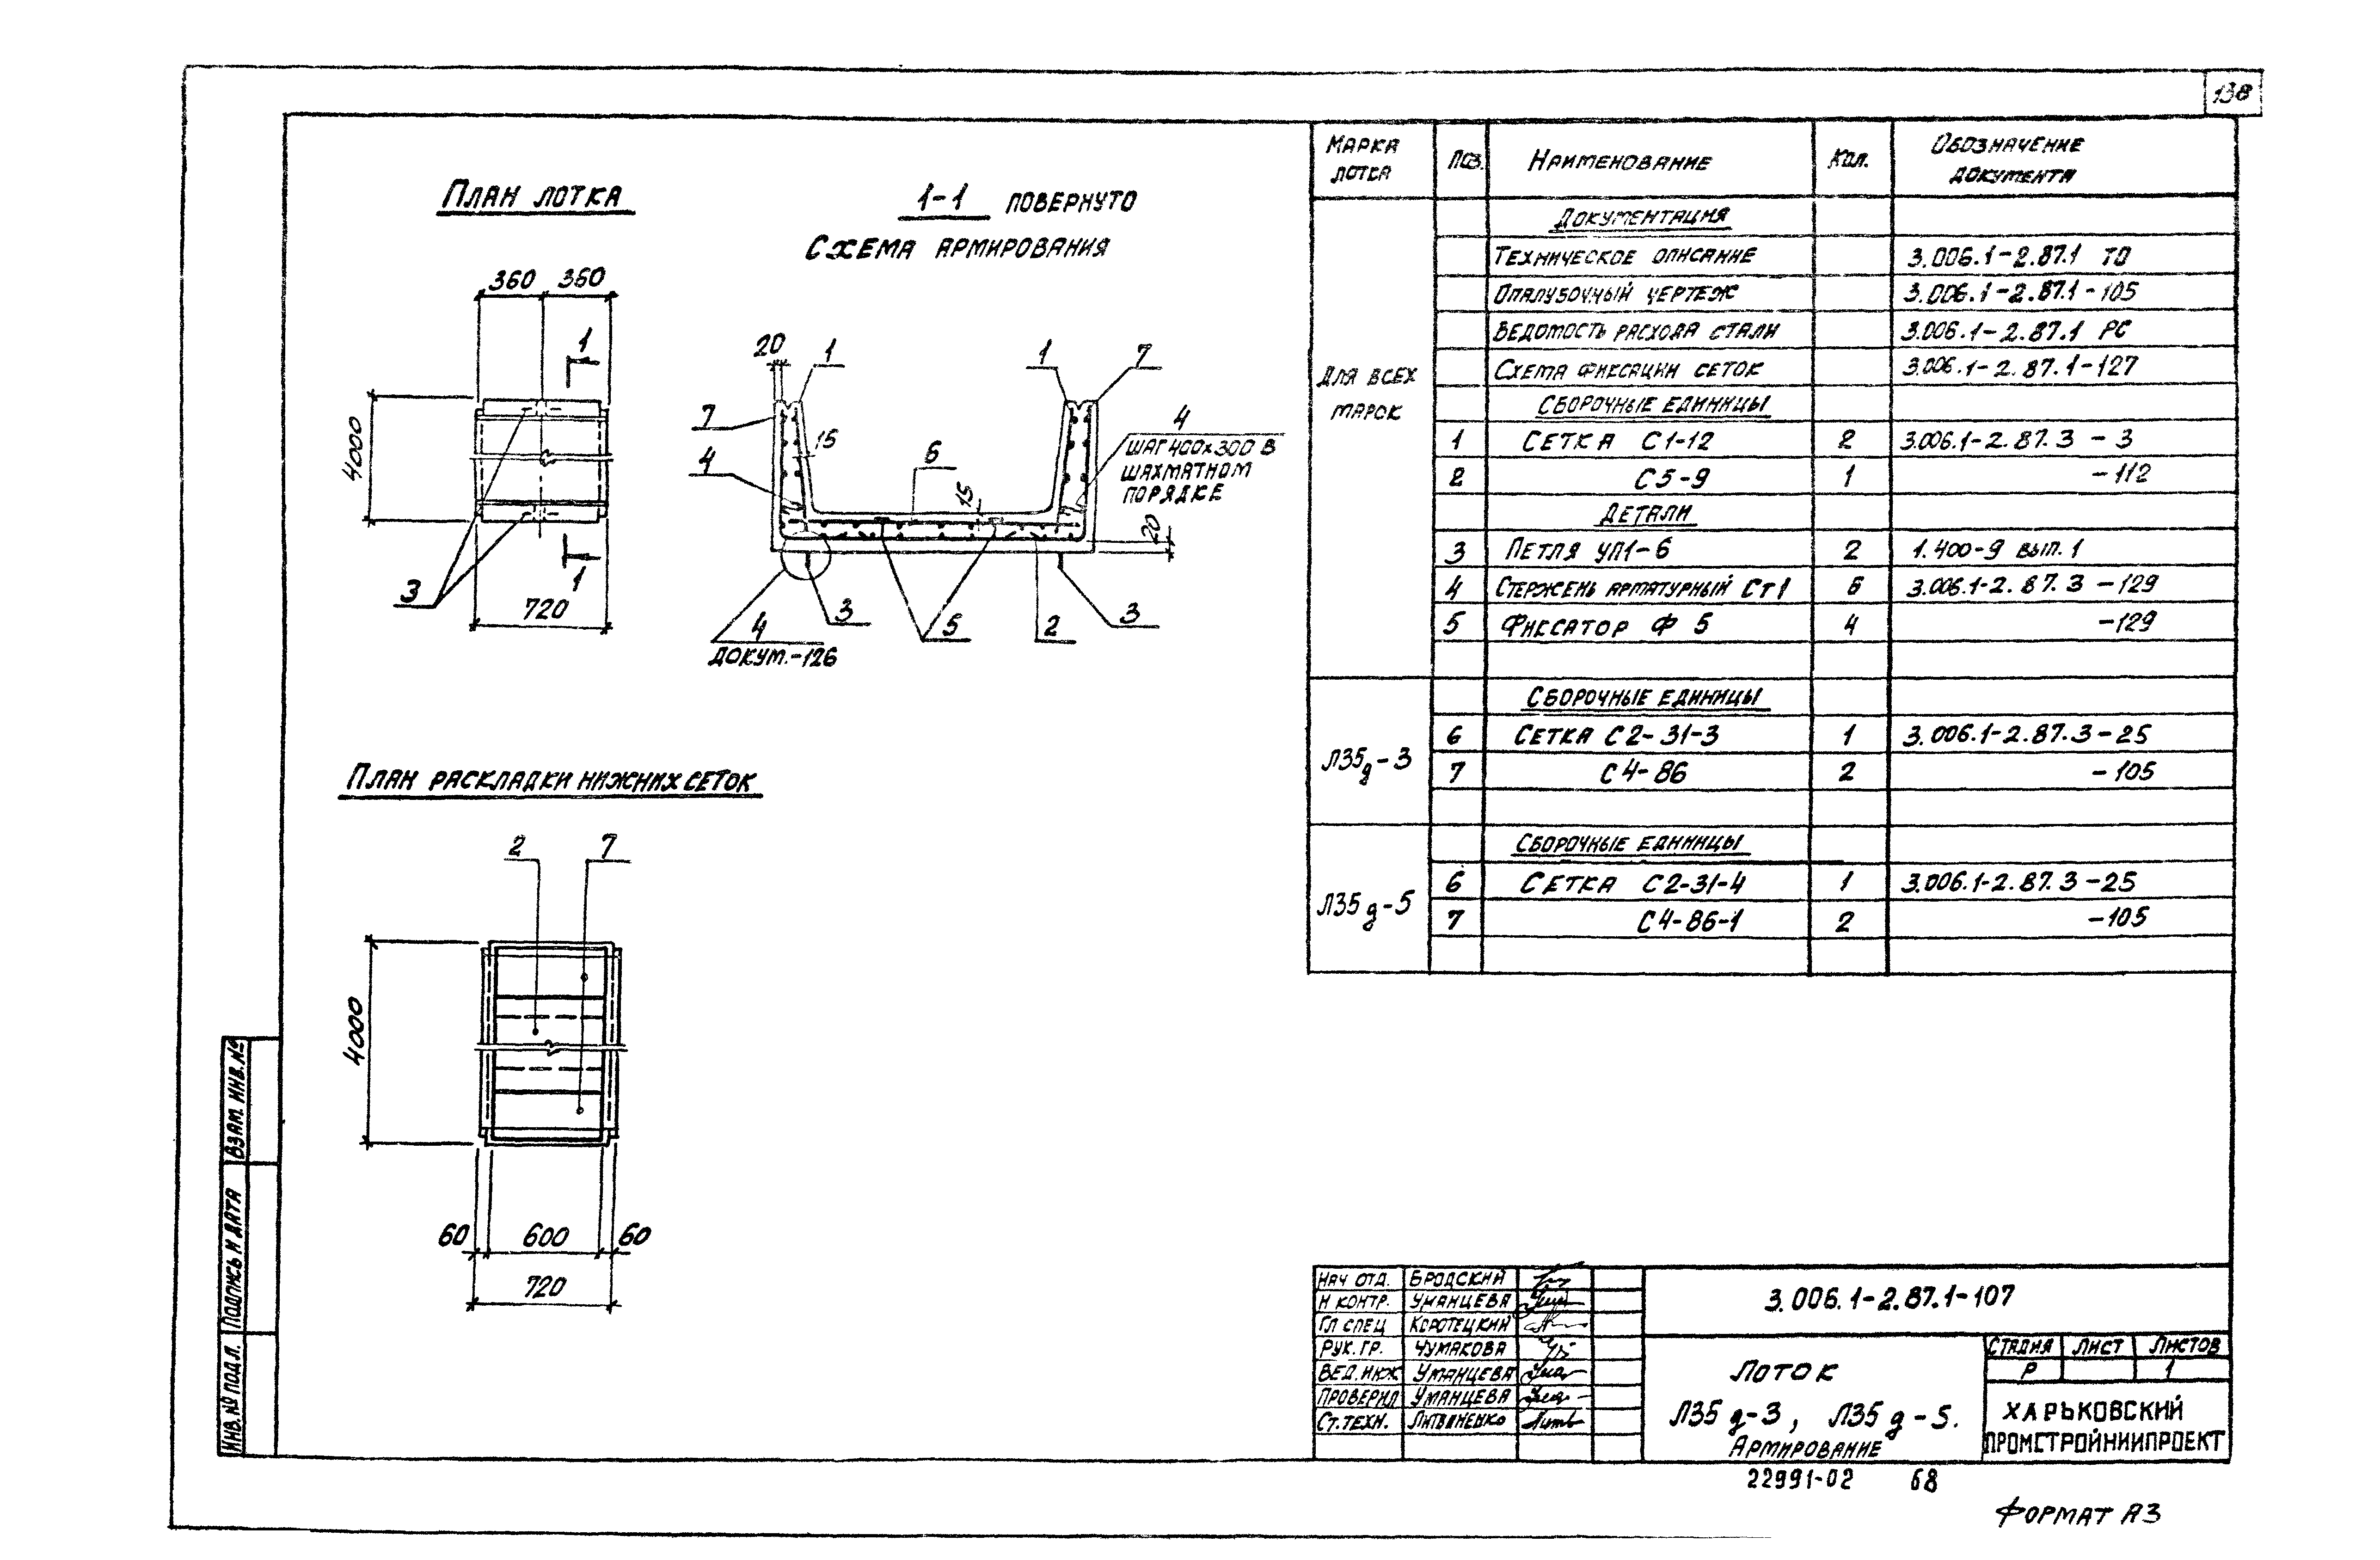 138
План лотка
360 360
1
4000
1
3
720
1-1 повернуто
Схема армирования
20 1 1 7
7
15
4
шаг 400х300 в
шахматном
порядке
4
6
15
20
4
докум.-126
3
5
2
3
План раскладки нижних сеток
2 7
4000
60 600 60
720
Марка лотка Поз. Наименование Кол. Обозначение документа
Для всех марок
Документация
Техническое описание 3.006.1-2.87.1 ТО
Опалубочный чертеж 3.006.1-2.87.1-105
Ведомость расхода стали 3.006.1-2.87.1 РС
Схема фиксации сеток 3.006.1-2.87.1-127
Сборочные единицы
1 Сетка С1-12 2 3.006.1-2.87.3 -3
2 С5-9 1 -112
Детали
3 Петля УП1-6 2 1.400-9 вып.1
4 Стержень арматурный Ст1 6 3.006.1-2.87.3 -129
5 Фиксатор Ф 5 4 -129
Л35д-3
Сборочные единицы
6 Сетка С2-31-3 1 3.006.1-2.87.3-25
7 С4-86 2 -105
Л35д-5
Сборочные единицы
6 Сетка С2-31-4 1 3.006.1-2.87.3-25
7 С4-86-1 2 -105
Взам. инв.№
Подпись и дата
Инв.№ подл.
Нач отд. Бродский
Н контр. Уманцева
Гл спец Коротецкий
Рук. гр. Чумакова
Вед. инж Уманцева
Проверил Уманцева
Ст. техн. Литвиненко
3.006.1-2.87.1-107
Лоток
Л35д-3, Л35д-5.
Армирование
Стадия Лист Листов
Р 1
Харьковский
Промстройниипроект
22991-02 68
Формат А3